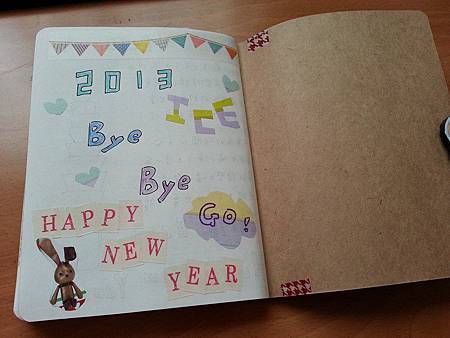 2013
ICE
Bye
Bye
GO!
HAPPY
NEW
YEAR